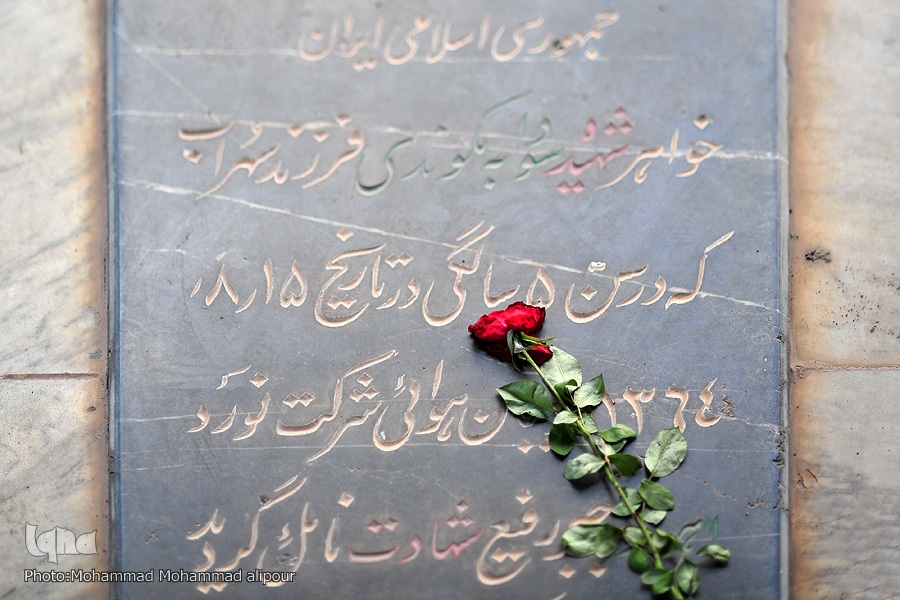 جمهوری اسلامی ایران
خواهر شهید سودابه گوندی فرزند سهراب
که در سن ۵ سالگی در تاریخ ۱۵ر۸ر
۱۳۶۴ هوائی شرکت نورد
رفیع شهادت نائل گردید
iqna
Photo:Mohammad Mohammad alipour